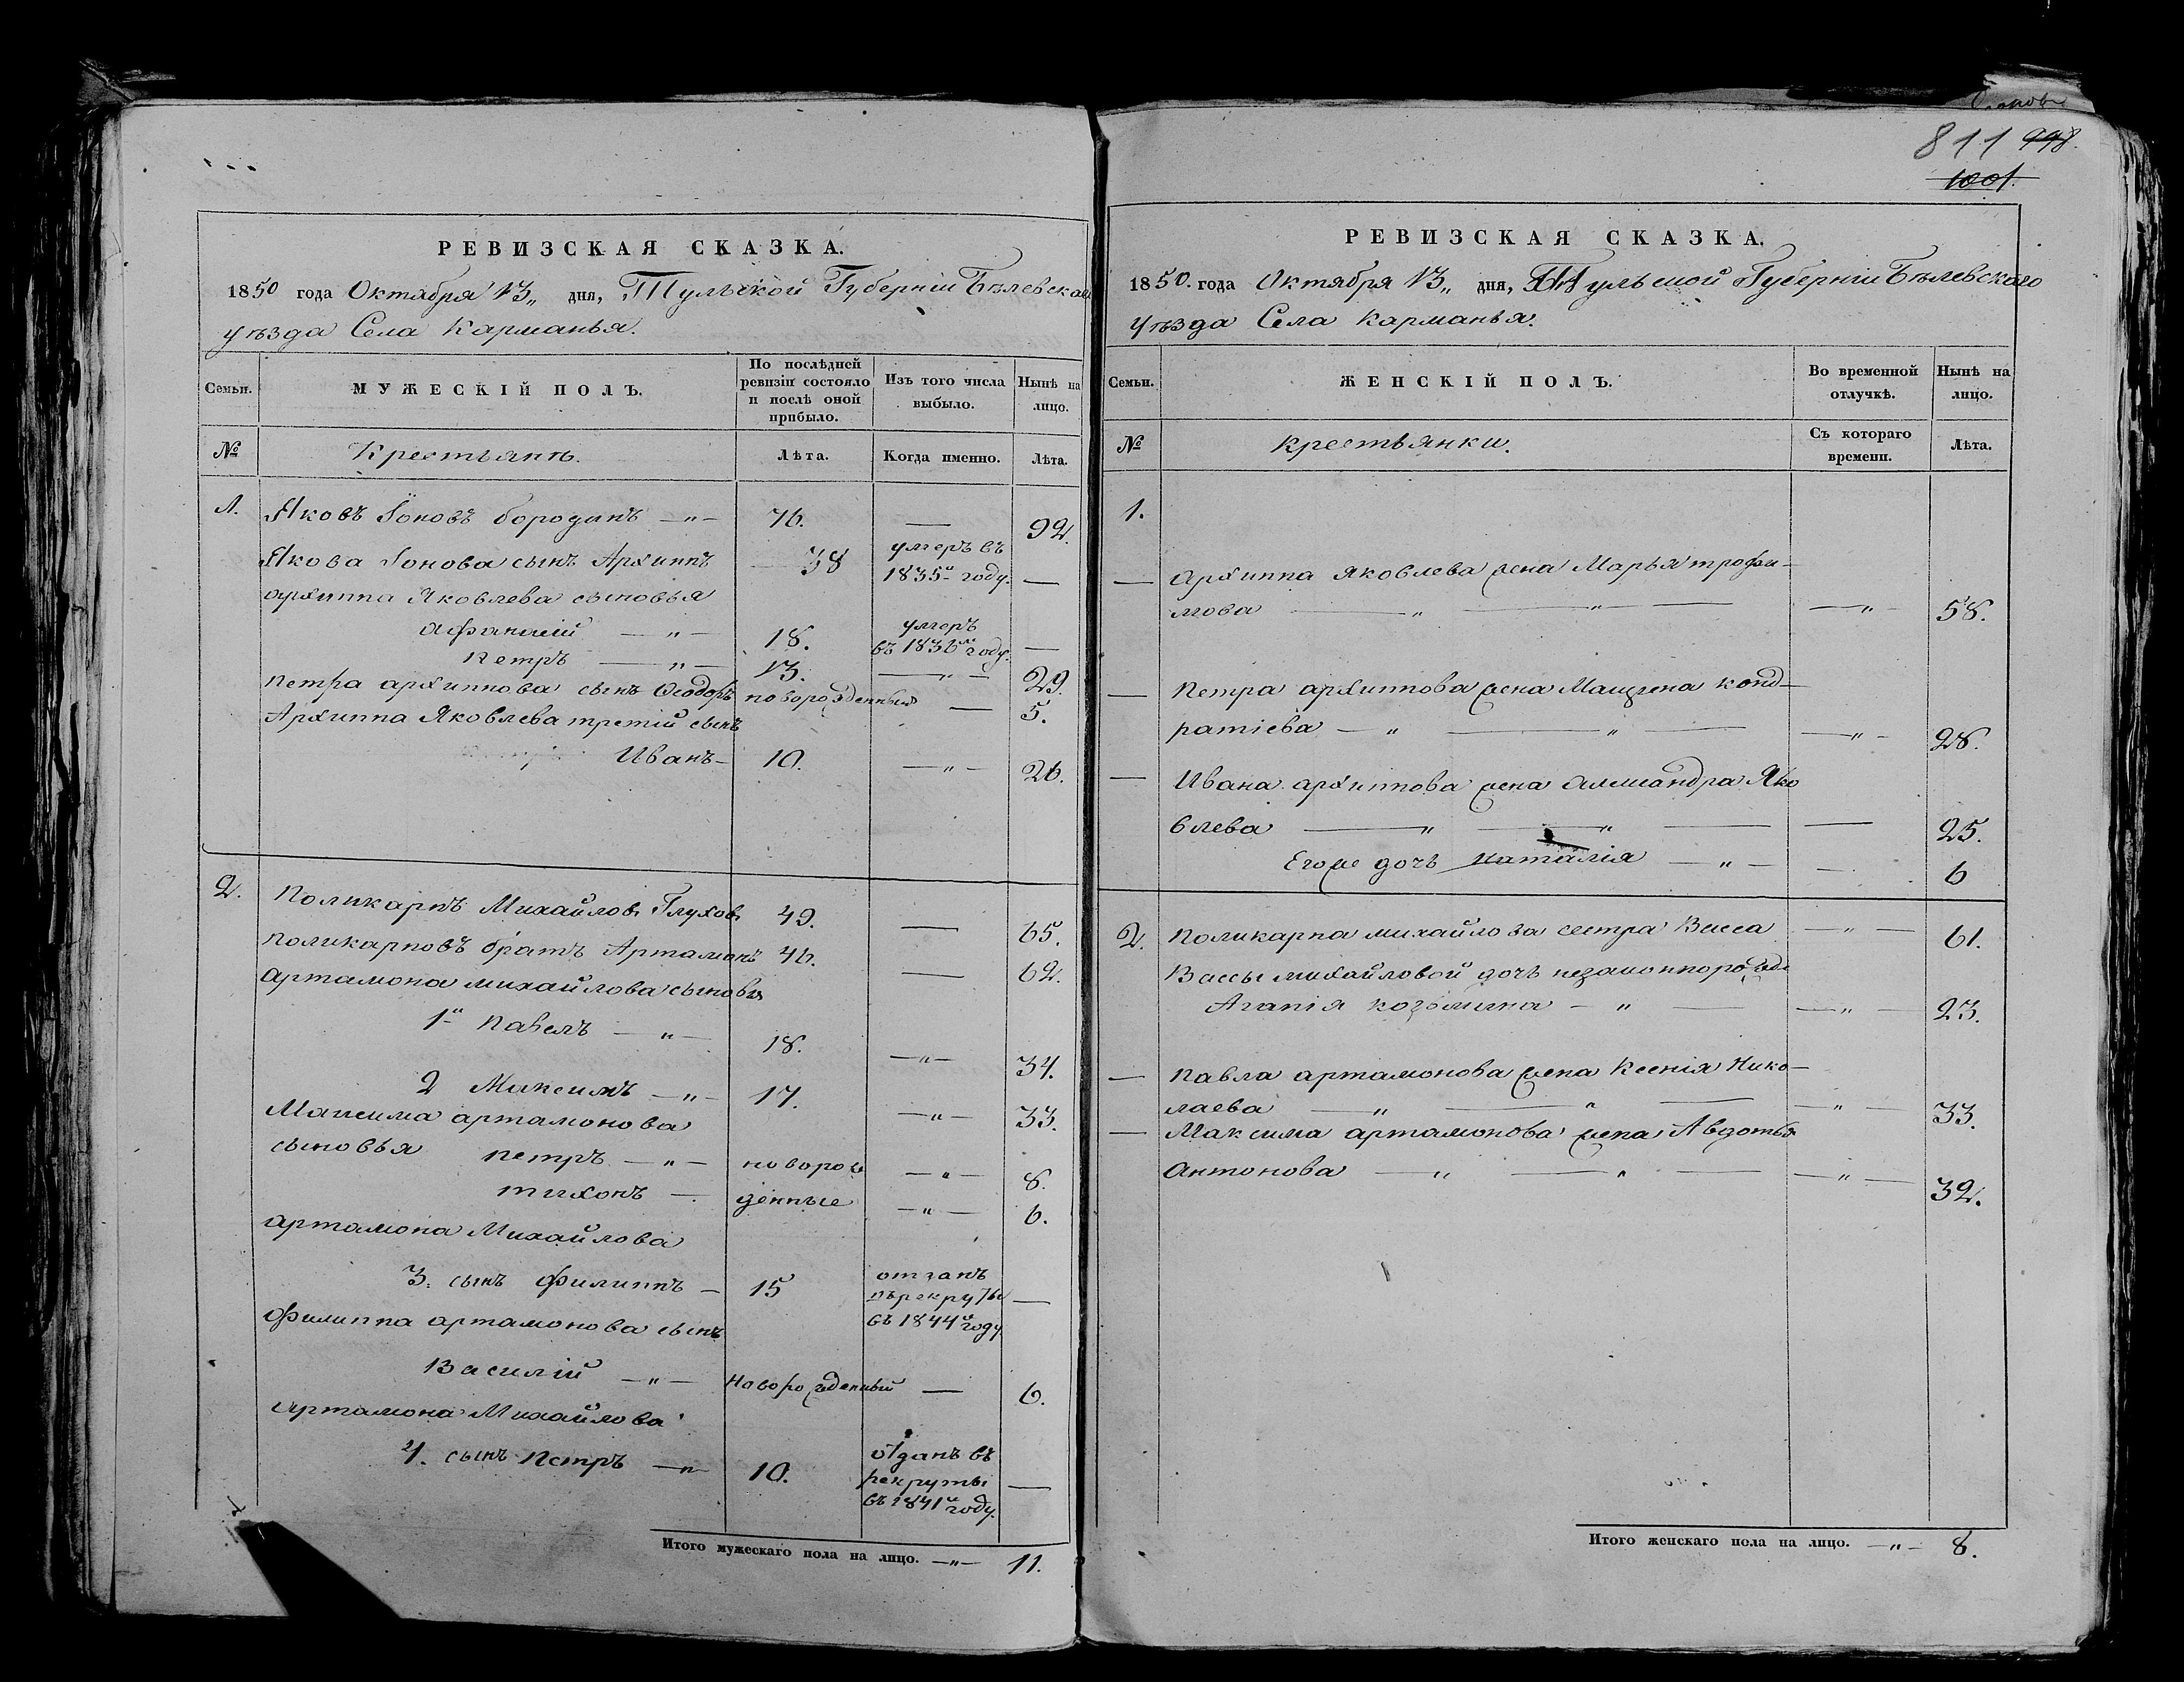 811 998.
1001.
РЕВИЗСКАЯ СКАЗКА.
1850 года Октября 13„ дня, Тульской Губерніи Бѣлевскаго
уѣзда Села Карманья.
Семьи.
МУЖЕСКІЙ ПОЛЪ.
По послѣдней
ревизіи состояло
и послѣ оной
прибыло.
Изъ того числа
выбыло.
Нынѣ на
лицо.
№
Крестьянъ.
Лѣта.
Когда именно.
Лѣта.
1. Яковъ Іоновъ бородинъ —„— 76. — 92.
Якова Іонова сынъ Архиппъ 38 умеръ въ
1835м году. —
архиппа Яковлева сыновья
афанасій —„— 18. умеръ
въ 1836м году. —
петръ —„— 13. —„— 29.
петра архиппова сынъ Ѳеодоръ новорожденный — 5.
Архиппа Яковлева третій сынъ
Иванъ— 10. —„— 26.
2. Поликарпъ Михайловъ Глуховъ 49. — 65.
поликарповъ братъ Артамонъ 46. — 62.
артамона михайлова сыновья
1й павелъ —„— 18. —„— 34.
2 Максимъ —„— 17. —„— 33.
Максима артамонова
сыновья петръ —„— новорож —„— 8.
тихонъ —. денные —„— 6.
артамона Михайлова
3. сынъ филиппъ — 15 отданъ
въ рекруты —
въ 1844м году
Филиппа артамонова сынъ
Василій —„— Новорожденный — 6.
Артамона Михайлова
4. сынъ петръ —„— 10. отданъ въ
рекруты —
въ 1841м году.
Итого мужескаго пола на лицо. —„— 11.
РЕВИЗСКАЯ СКАЗКА.
1850. года Октября 13„ дня, Тульской Губерніи Бѣлевскаго
уѣзда Села Карманья.
Семьи.
ЖЕНСКІЙ ПОЛЪ.
Во временной
отлучкѣ.
Нынѣ на
лицо.
№
крестьянки.
Съ котораго
времени.
Лѣта.
1.
— архиппа яковлева жена Марья трофи—
мова —„— —„— — —„— 58.
— петра архиппова жена конд—
ратіева —„— —„— — —„— 28.
— Ивана архиппова жена александра Яко
влева —„— —„— — — 25.
Егоже дочь наталія —„— — 6
2. поликарпа михайлова сестра Васса —„— 61.
Вассы михайловой дочь незаконнорожде
Агапія козьмина —„— — —„— 23.
— павла артамонова жена Ксенія Нико—
лаева —„— —„— — —„— 33.
— Максима артамонова жена Авдотья
антонова —„— —„— — —„— 32.
Итого женскаго пола на лицо. —„— 8.